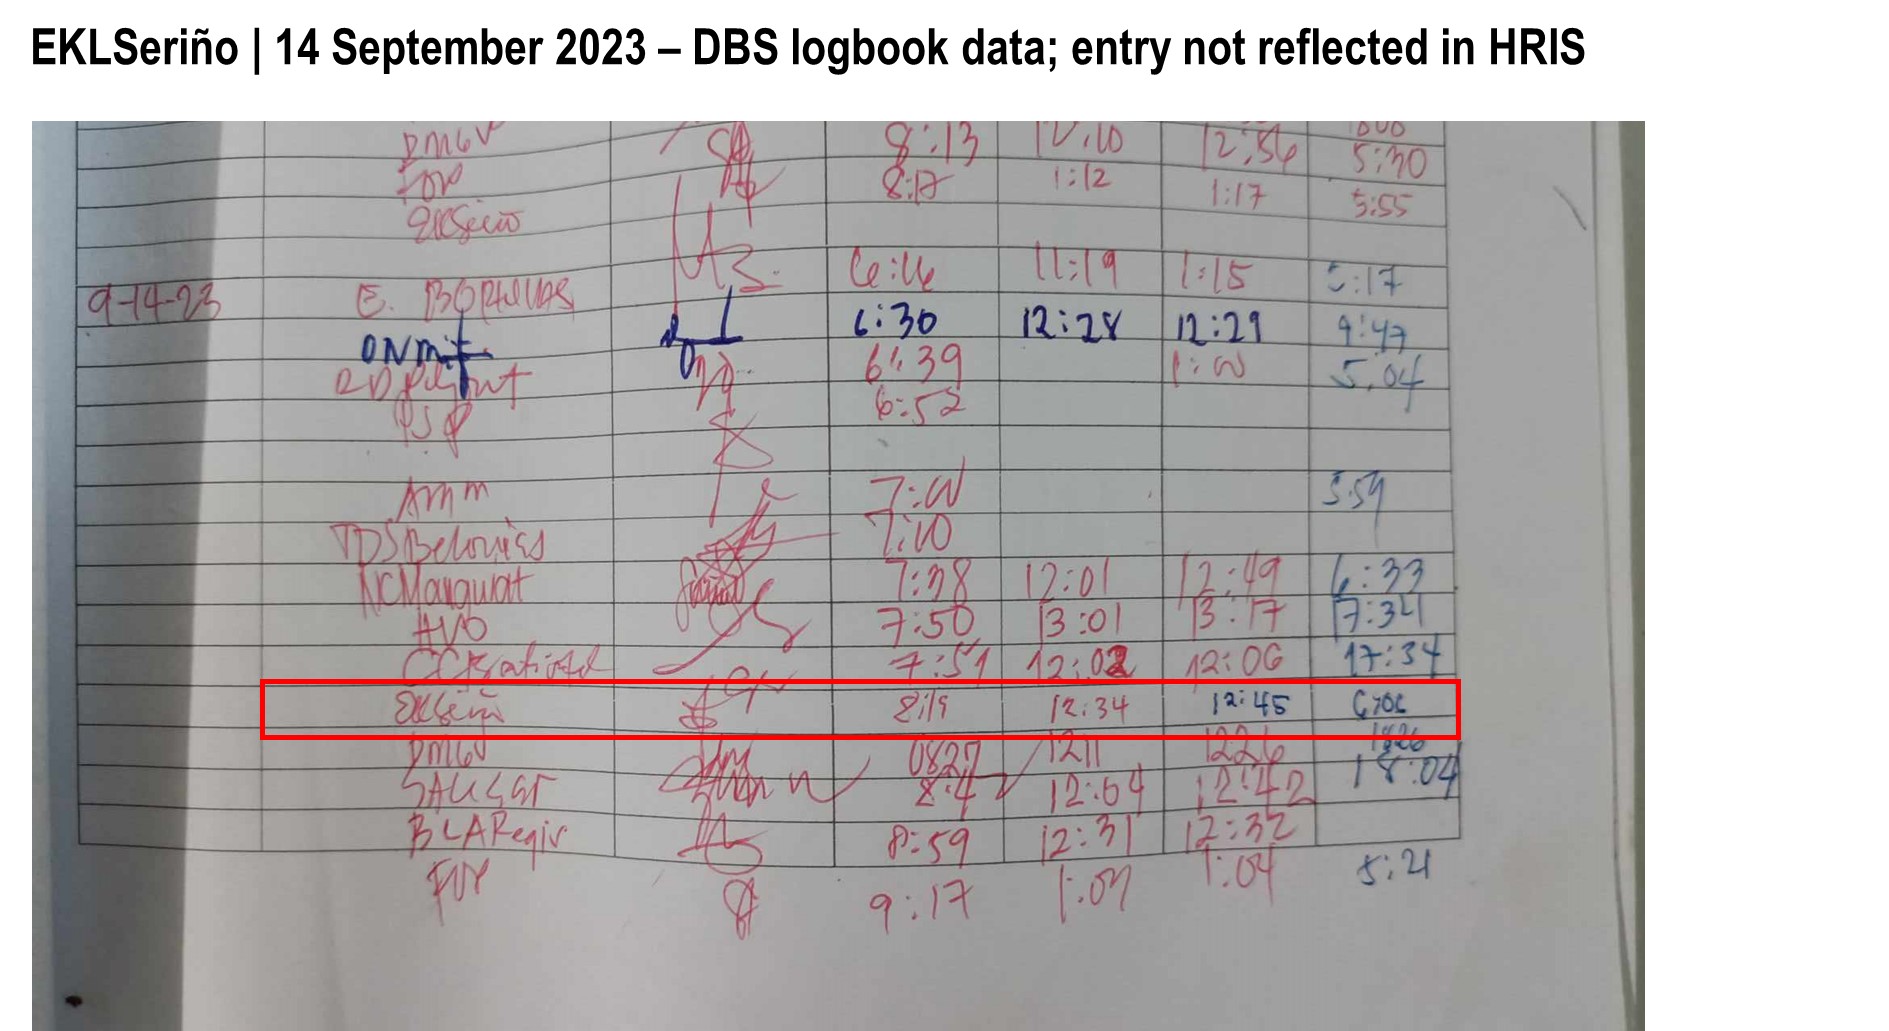 EKLSeriño | 14 September 2023 – DBS logbook data; entry not reflected in HRIS
DMGV 8:13 12:10 12:56 5:30
8:17 1:12 1:17 5:55
EKSeriño
9-14-23 E. 11:19 1:15 5:17
6:30 12:28 12:29 9:47
6:39 1:00 5.04
PSP 6:52
AMM 7:00 5:59
TDSBelonias 7:10
NCMangwat 7:38 12:01 12:49 6:33
AVO 7:50 13:01 13:17 7:34
7:51 12:02 12:06 17:34
EKSeriño 8:19 12:34 12:45 6:06
DMGV 0827 1211 1226 1826
8:4 12:04 12:42 18:04
BLARegis 8:59 12:31 12:32
9:17 1:04 5:21